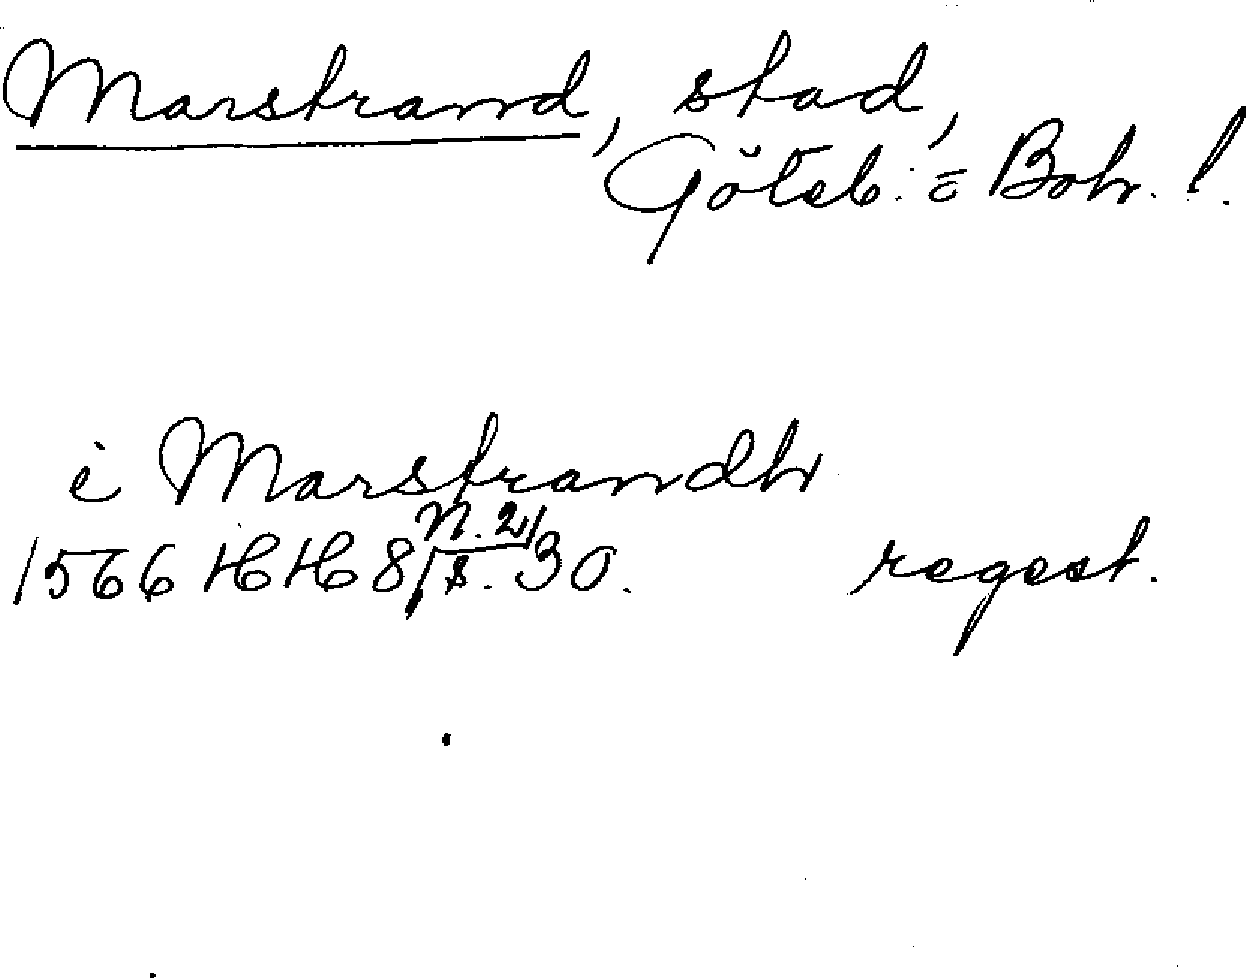 Marstrand, stad,
Göteb. o Boh. l.
i Marstrandh
n. 2/
1566 HH 8/s. 30. regest.